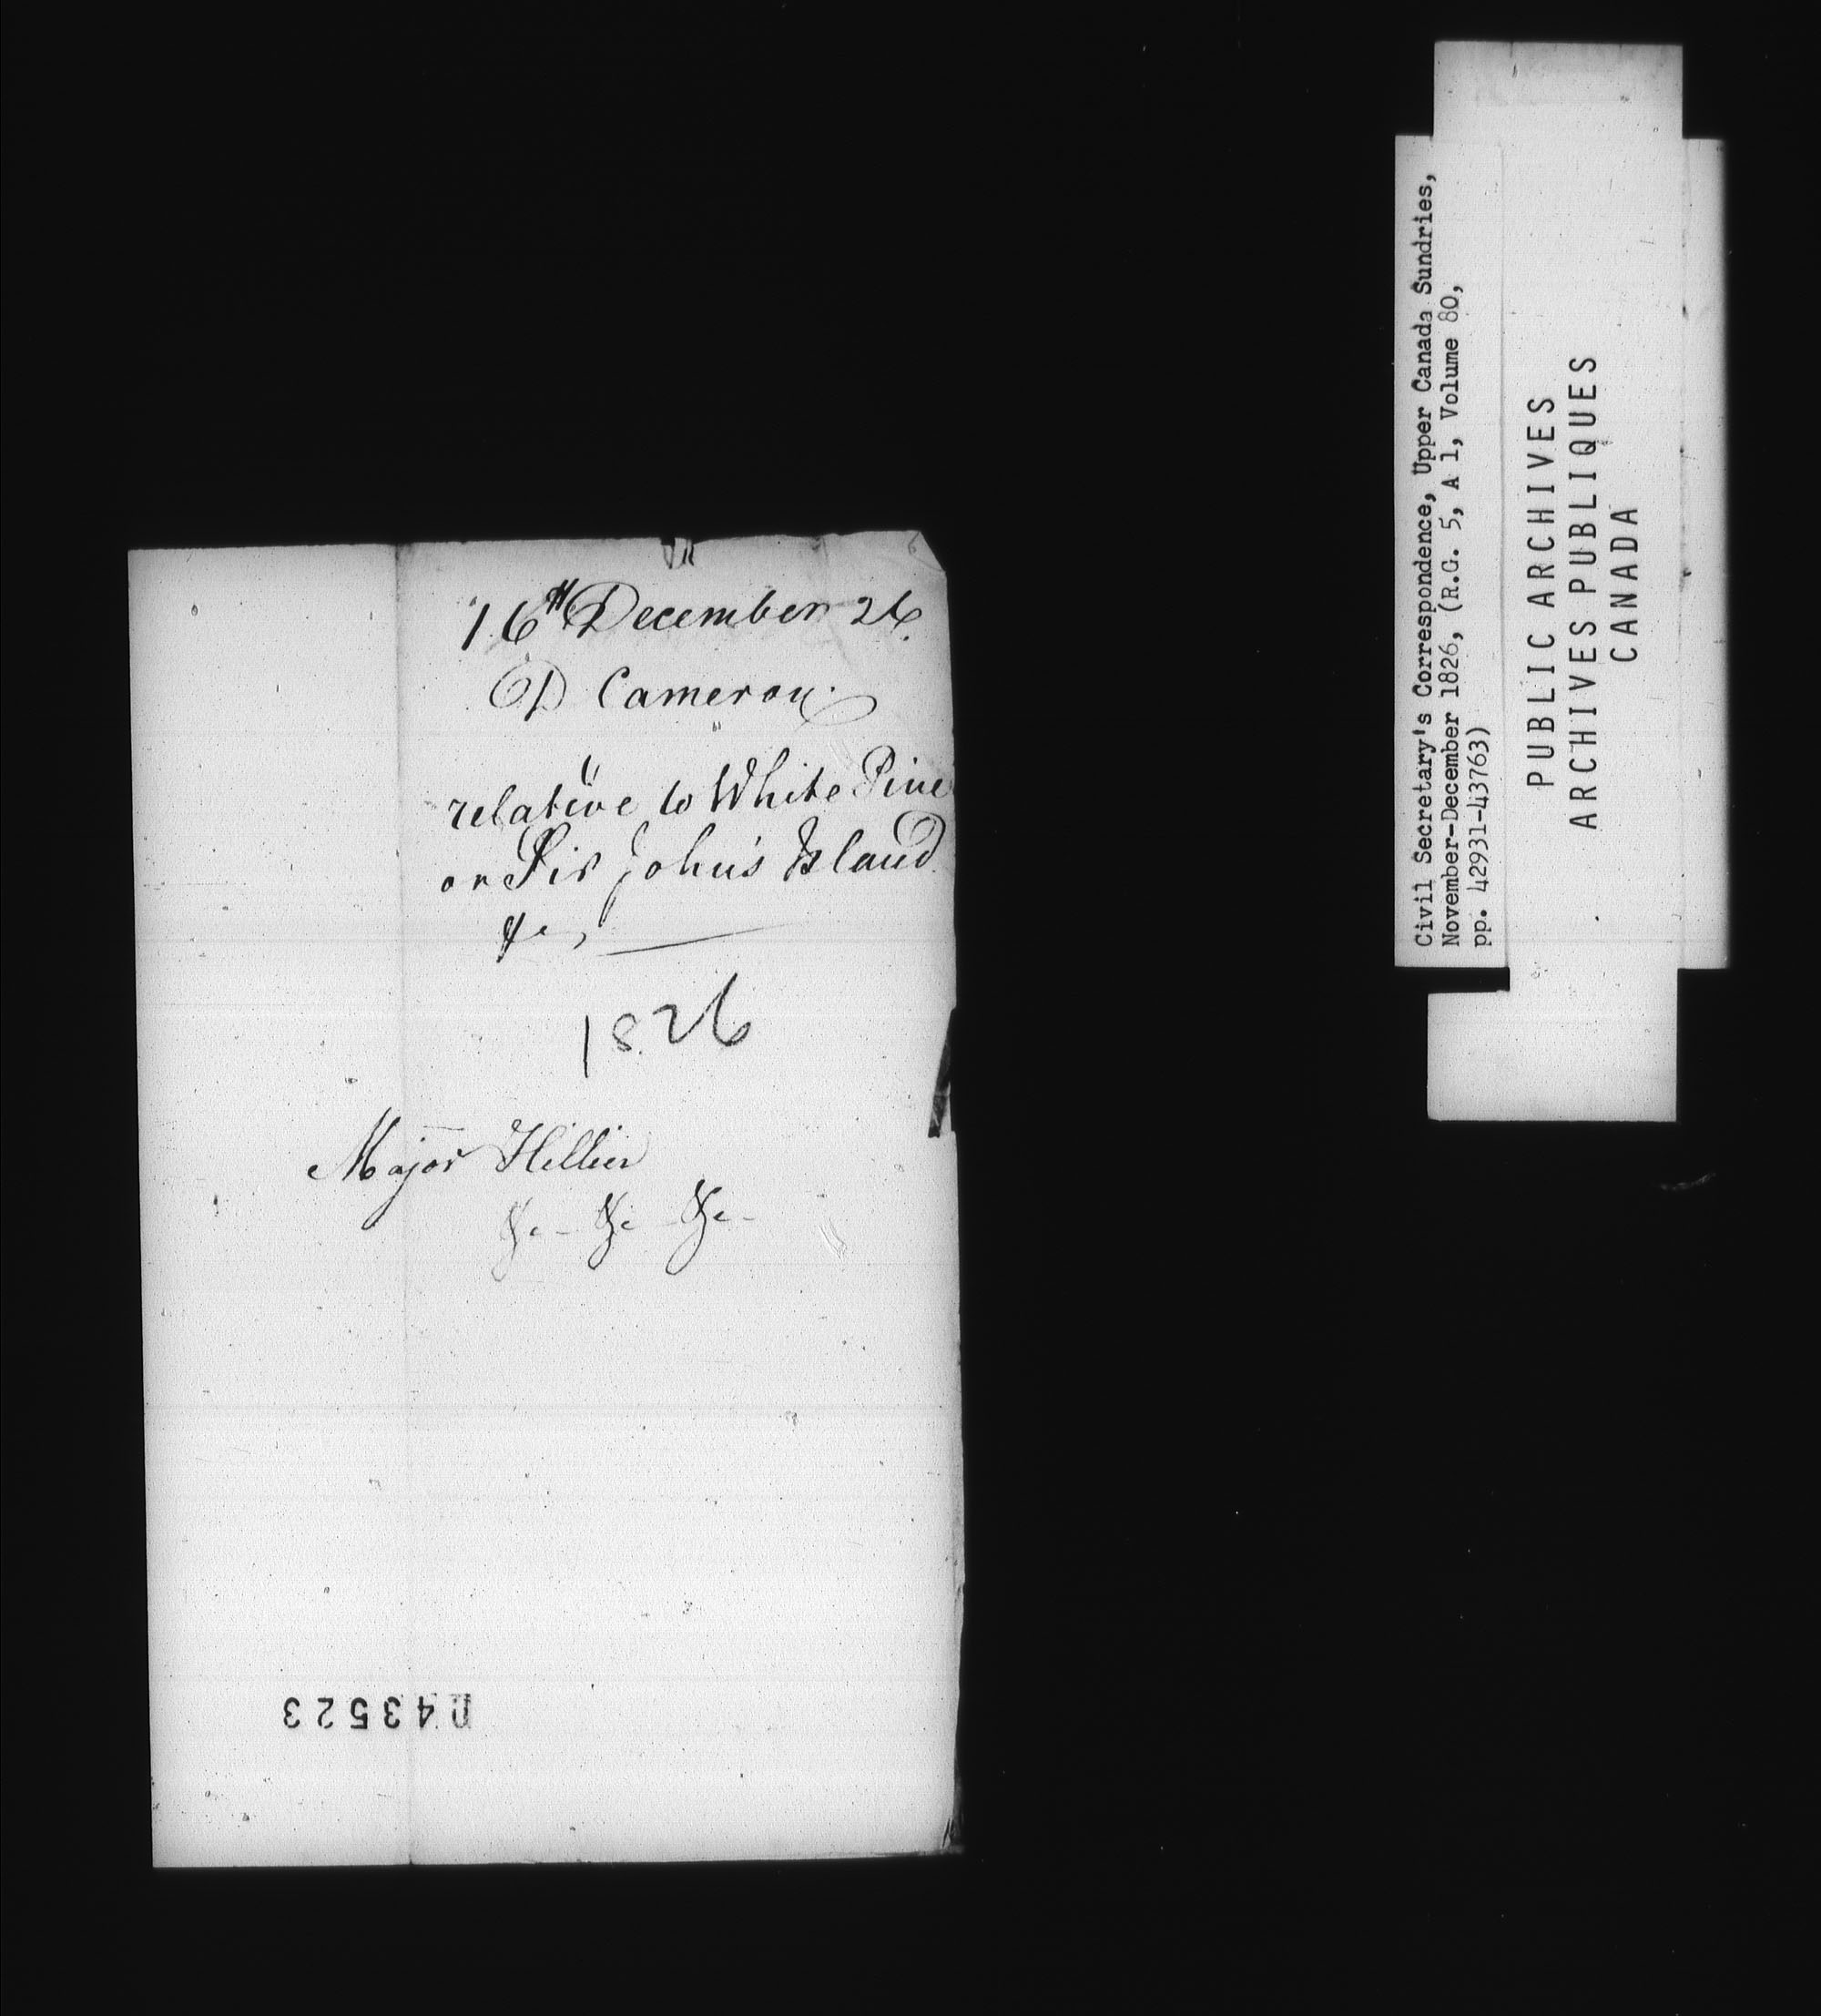 16th December 26.
D Cameron
relative to White Pine
on Sir John's Island
&c,
1826
Major Hillier
&c - &c - &c -
043523
Civil Secretary's Correspondence, Upper Canada Sundries,
November-December 1826, (R.G. 5, A 1, Volume 80,
pp. 42931-43763)
PUBLIC ARCHIVES
ARCHIVES PUBLIQUES
CANADA